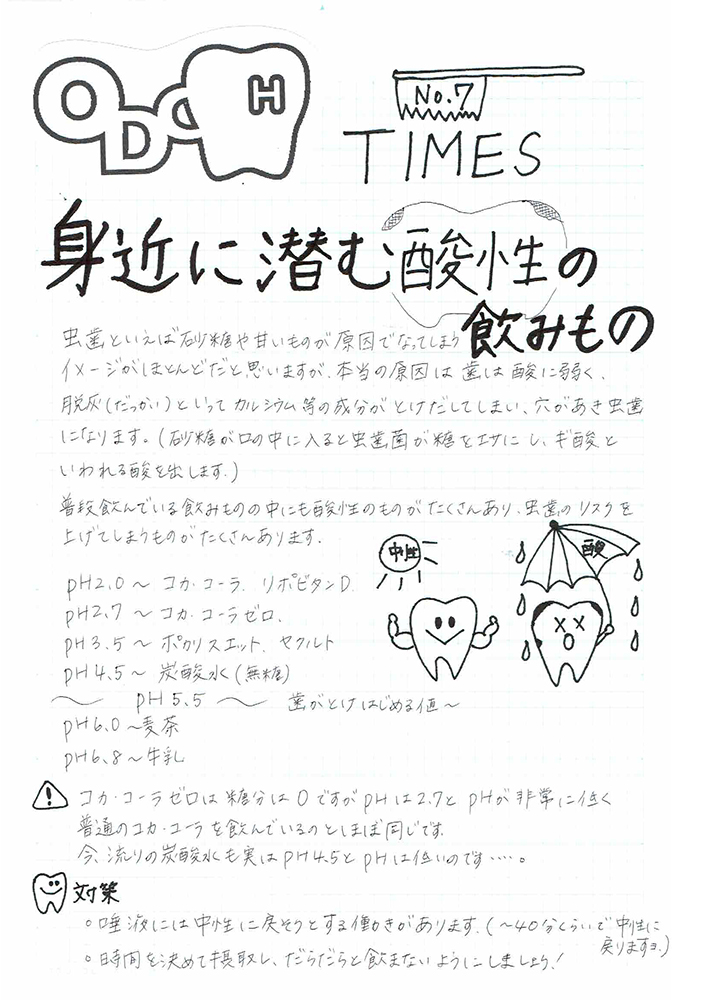 ODC H
No.7
TIMES
身近に潜む酸性の
飲みもの
虫歯といえば砂糖や甘いものが原因でなってしまう
イメージがほとんどだと思いますが、本当の原因は 歯は酸に弱く、
脱灰(だっかい)といって カルシウム等の成分がとけだしてしまい、穴があき虫歯
になります。(砂糖が口の中に入ると虫歯菌が糖をエサにし、ギ酸と
いわれる酸を出します。)
普段飲んでいる飲みものの中にも酸性のものがたくさんあり、虫歯のリスクを
上げてしまうものがたくさんあります。
中性
酸
pH2.0〜 コカ・コーラ、リポビタンD
pH2.7〜 コカ・コーラゼロ、
pH3.5〜 ポカリスエット、ヤクルト
pH4.5〜 炭酸水(無糖)
〜 pH5.5 〜 歯がとけはじめる値〜
pH6.0〜麦茶
pH6.8〜牛乳
コカ・コーラゼロは糖分は0ですがpHは2.7とpHが非常に低く
普通のコカ・コーラを飲んでいるのとほぼ同じです。
今、流行の炭酸水も実はpH4.5とpHは低いのです‥‥。
対策
○唾液には中性に戻そうとする働きがあります。(〜40分くらいで中性に
戻りますヨ。)
○時間を決めて摂取し、だらだらと飲まないようにしましょう!